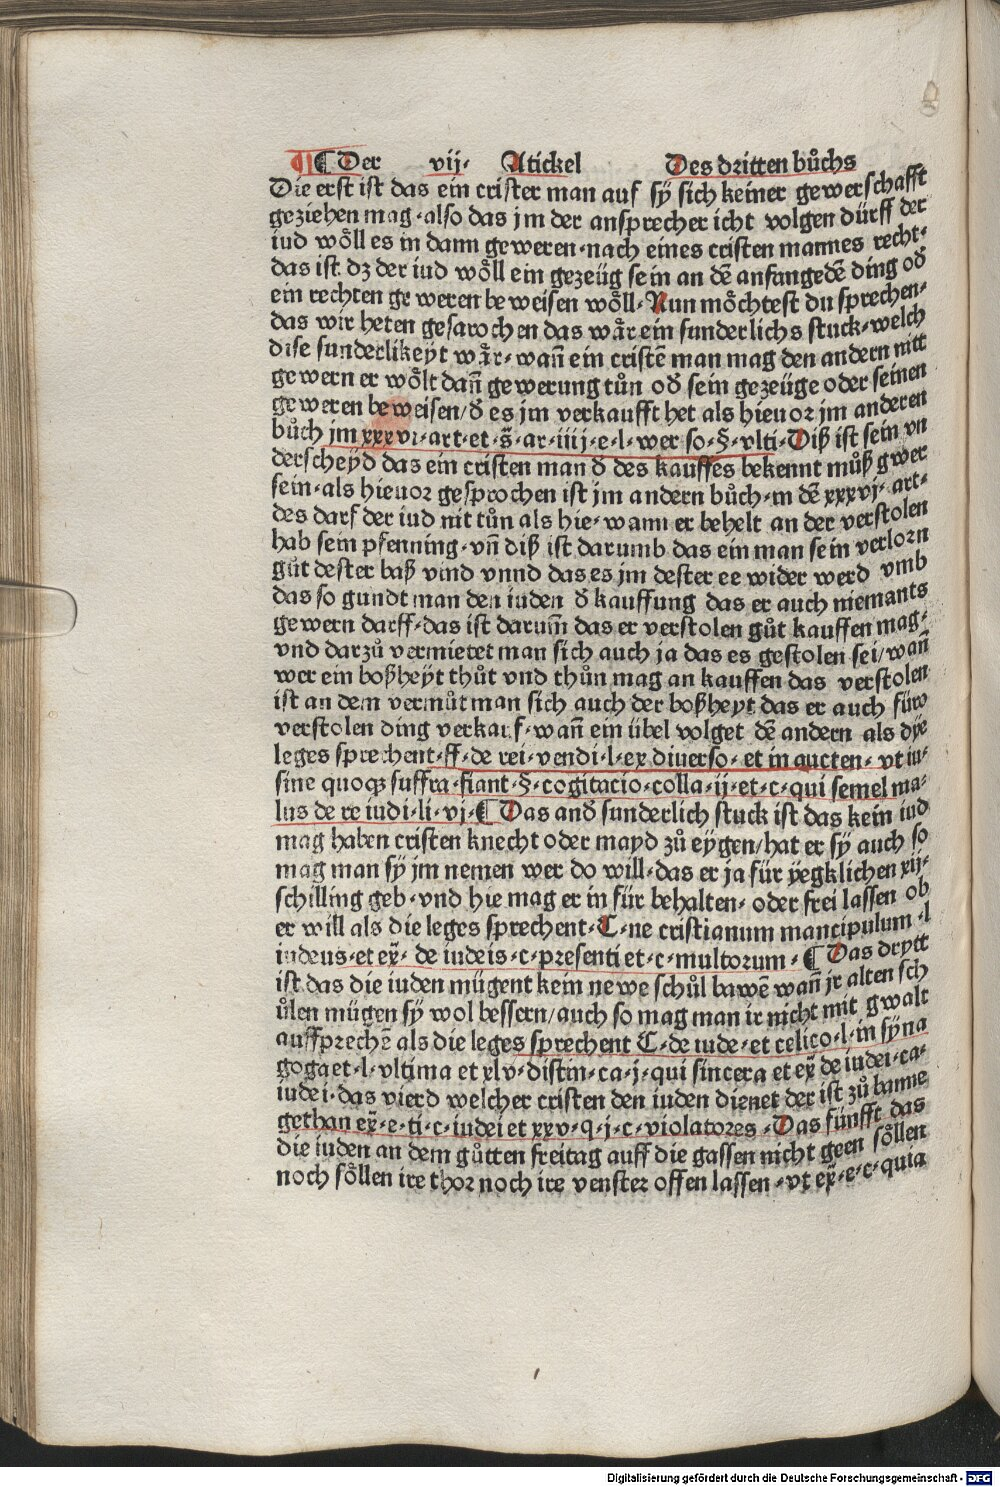 ¶ Der vij· Atickel Des dritten bůchs
Die erst ist das ein crister man auf sÿ sich keiner gewerschafft
geziehen mag·also das jm der ansprecher icht volgen dürff der
iud woͤll es in dann geweren·nach eines cristen mannes recht·
das ist dz der iud woͤll ein gezeüg sein an dē anfangedē ding od̕
ein rechten ge weren be weisen woͤll·Nun moͤchtest du sprechen·
das wir heten gesarochen das waͤr ein sunderlichs stuck·welch
dise sunderlikeyt waͤr·wañ ein cristē man mag den andern nitt
gewern er woͤlt dañ gewerung tůn od̕ sein gezeüge oder seinen
geweren beweisen/d̕ es jm verkaufft het als hieuor jm anderen
bůch jm xxxvi·art·et·s̄·ar·iiij·e·l·wer so·§·vlti·Diß ist sein vn
derscheyd das ein cristen man d̕ des kauffes bekennt můß gwer
sein·als hieuor gesprochen ist jm andern bůch·m dē xxxvj·art·
des darf der iud nit tůn als hie·wann er behelt an der verstolen
hab sein pfenning·vñ diß ist darumb das ein man sein verlorn
gůt dester baß vind vnnd das es jm dester ee wider werd vmb
das so gundt man den iuden d̕ kauffung das er auch niemants
gewern darff·das ist darum̄ das er verstolen gůt kauffen mag·
vnd darzů vermietet man sich auch ja das es gestolen sei/wañ
wer ein boßheÿt thůt vnd thůn mag an kauffen das verstolen
ist an dem vermůt man sich auch der boßheyt das er auch fürw
verstolen ding verkauf·wañ ein übel volget dē andern als dÿe
leges sprechent·ff·de rei·vendi·l·ex diuerso·et in aucten·vt iu·
sine quoqꝫ suffra·fiant·§·cogitacio·colla·ij·et·c·qui semel ma·
lus de re iudi·li·vj·¶ Das and̕ sunderlich stuck ist das kein iud
mag haben cristen knecht oder mayd zů eÿgen/hat er sÿ auch so
mag man sÿ jm nemen wer do will·das er ja für ÿegklichen xij·
schilling geb·vnd hie mag er in für behalten·oder frei lassen ob
er will als die leges sprechent·C·ne cristianum mancipulum·l
iudeus·et ex̄·de iudeis·c·presenti et·c·multorum·¶ Das drytt
ist das die iuden mügent kein newe schůl bawē wañ jr alten sch
ůlen mügen sÿ wol bessern/auch so mag man ir nicht mit gwalt
auffprechē als die leges sprechent C·de iude·et celico·l·in sÿna
goga et·l·vltima et xlv·distin·ca·j·qui sincera et ex̄ de iudei·ca·
iudei·das vierd welcher cristen den iuden dienet der ist zů banne
gethan ex̄·e·ti·c·iudei et xxv·q·j·c·violatores·Das fünfft das
die iuden an dem gůtten freitag auff die gassen nicht geen soͤllen
noch soͤllen ire thor noch ire venster offen lassen·vt ex̄·e·c·quia
Digitalisierung gefördert durch die Deutsche Forschungsgemeinschaft - DFG